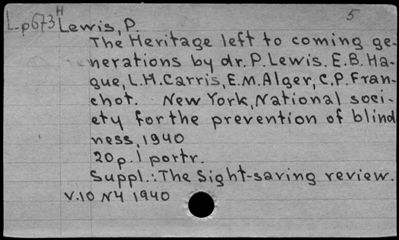 5
Lp673 H Lewis, P.
The Heritage left to coming ge-
nerations by dr. P. Lewis. E.B. Ha-
gue, L.H. Carris, E.M. Alger, C.P. Fran-
chot. New York, National soci-
ety for the prevention of blind
ness, 1940
20p. 1 portr.
Suppl.: The Sight-saving review.
V.10 N4 1940